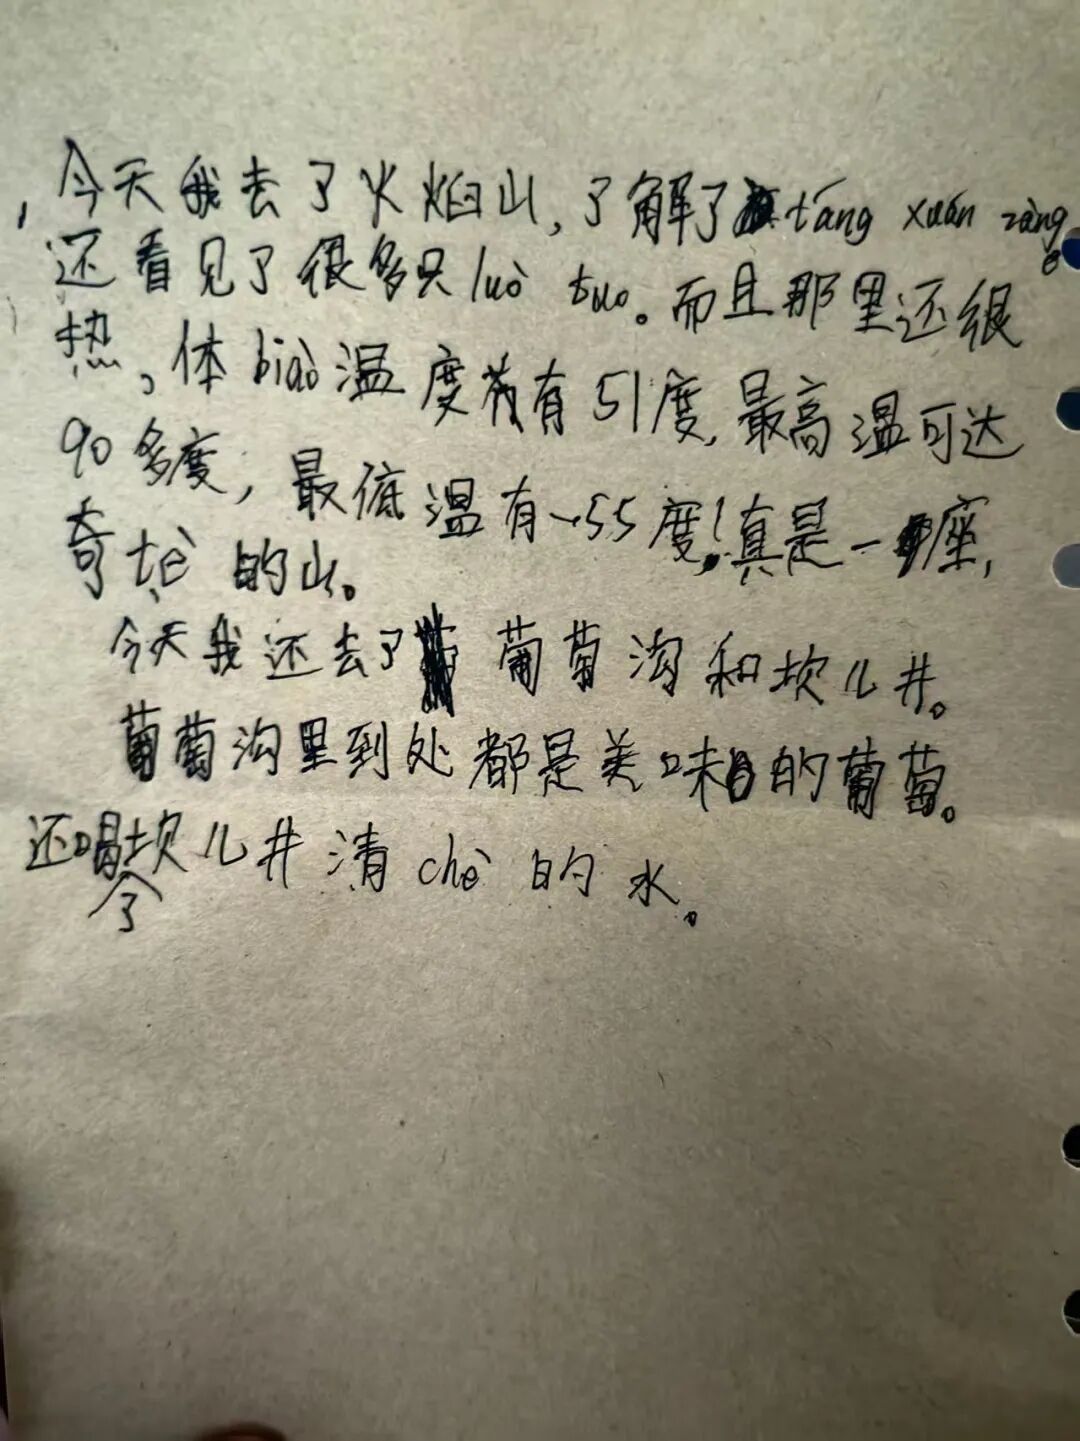 今天我去了火焰山，了解了táng xuán zàng。
还看见了很多只luò tuo。而且那里还很
热，体biǎo温度有51度，最高温可达
90多度，最低温有-55度！真是一座
奇tè的山。
今天我还去了葡萄沟和坎儿井。
葡萄沟里到处都是美味的葡萄。
还喝了坎儿井清chè的水。